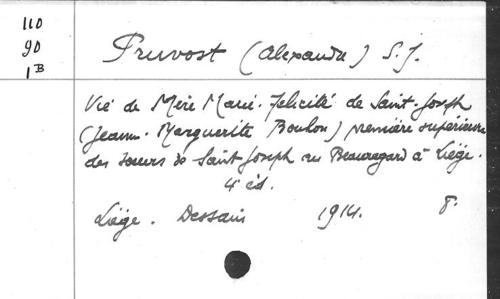 110
90
1B
Pruvost (Alexandre) S. J.
Vie de Mère Marie-Félicité de Saint-Joseph
(Jeanne-Marguerite Boulon) première supérieure
des soeurs de Saint Joseph au Beauregard à Liège.
4e éd.
Liège. Dessain 1914. 8°.